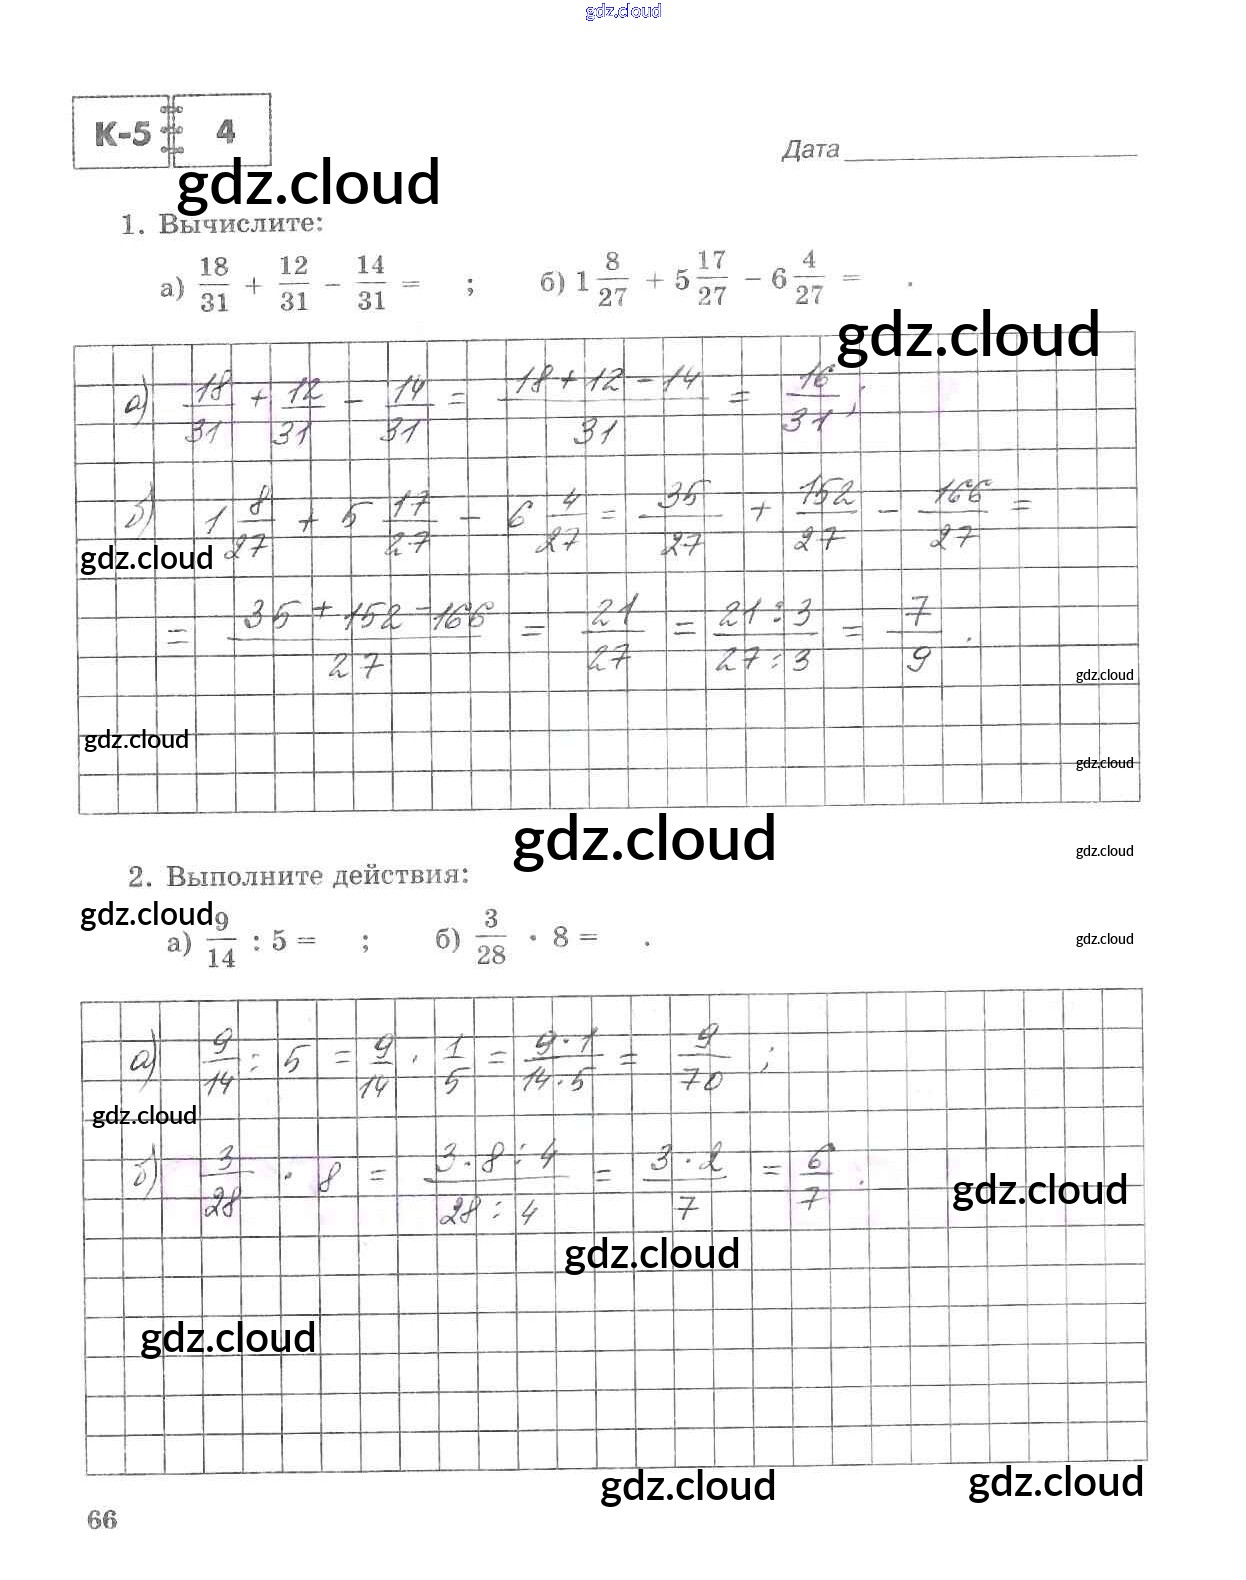 gdz.cloud
К-5 4
Дата
gdz.cloud
1. Вычислите:
а) 18/31 + 12/31 − 14/31 = ; б) 1 8/27 + 5 17/27 − 6 4/27 = .
gdz.cloud
а) 18/31 + 12/31 − 14/31 = (18 + 12 − 14)/31 = 16/31 ;
б) 1 8/27 + 5 17/27 − 6 4/27 = 35/27 + 152/27 − 166/27 =
gdz.cloud
= (35 + 152 − 166)/27 = 21/27 = (21 : 3)/(27 : 3) = 7/9 .
gdz.cloud
gdz.cloud
gdz.cloud
gdz.cloud
gdz.cloud
2. Выполните действия:
gdz.cloud
а) 9/14 : 5 = ; б) 3/28 · 8 = .
gdz.cloud
а) 9/14 : 5 = 9/14 · 1/5 = (9 · 1)/(14 · 5) = 9/70 ;
gdz.cloud
б) 3/28 · 8 = (3 · 8 : 4)/(28 : 4) = (3 · 2)/7 = 6/7 .
gdz.cloud
gdz.cloud
gdz.cloud
gdz.cloud
gdz.cloud
66